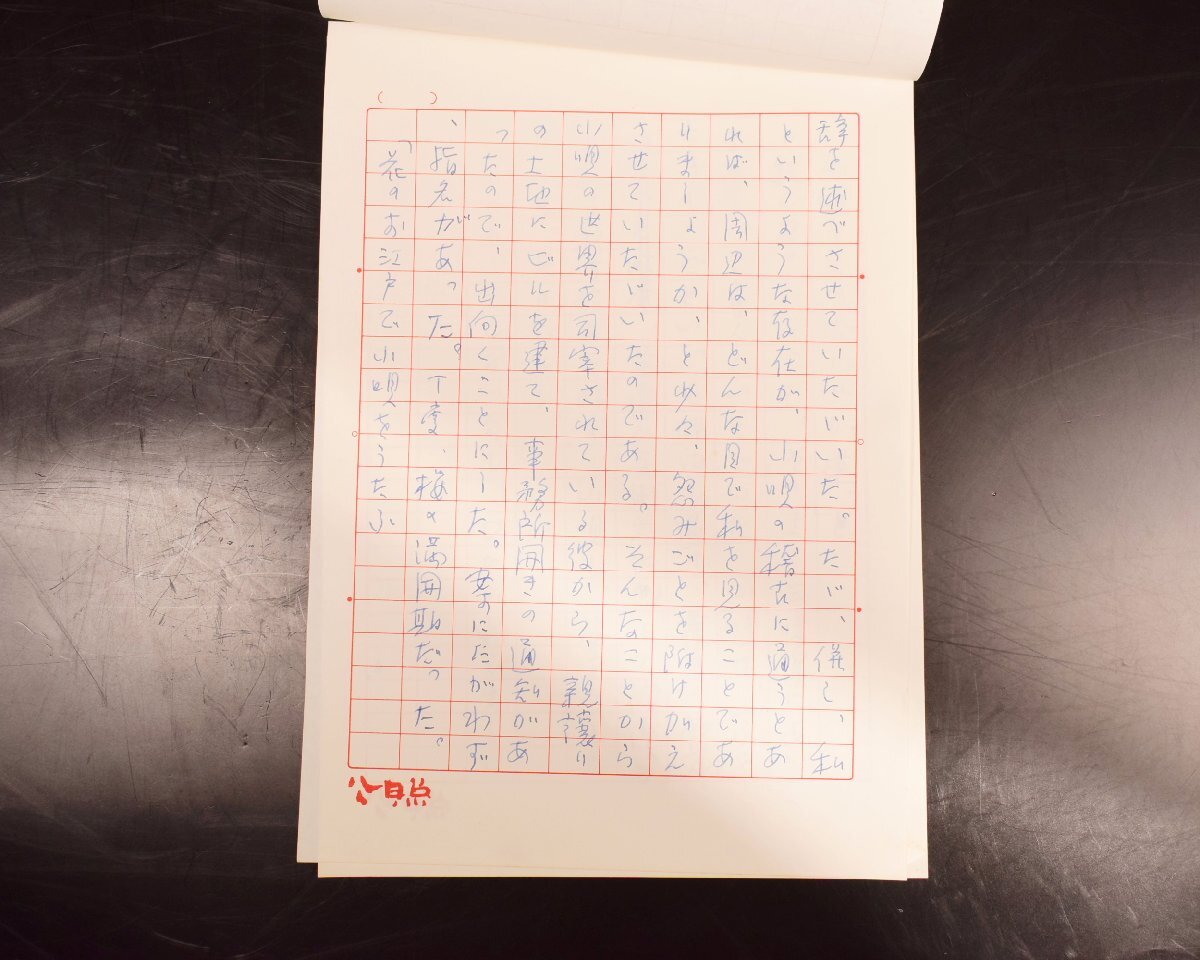 辞を述べさせていただいた。ただ、併し、私
というような存在が、小唄の稽古に通うとあ
れば、周辺は、どんな目で私を見ることであ
りましょうか、と少々、怨みごとを附け加え
させていただいたのである。そんなことから
小唄の世界を司宰されている彼から、親譲り
の土地にビルを建て、事務所開きの通知があ
ったので、出向くことにした。案にたがわず
、指名があった。丁度、桜の満開期だった。
「花のお江戸で小唄をうたふ